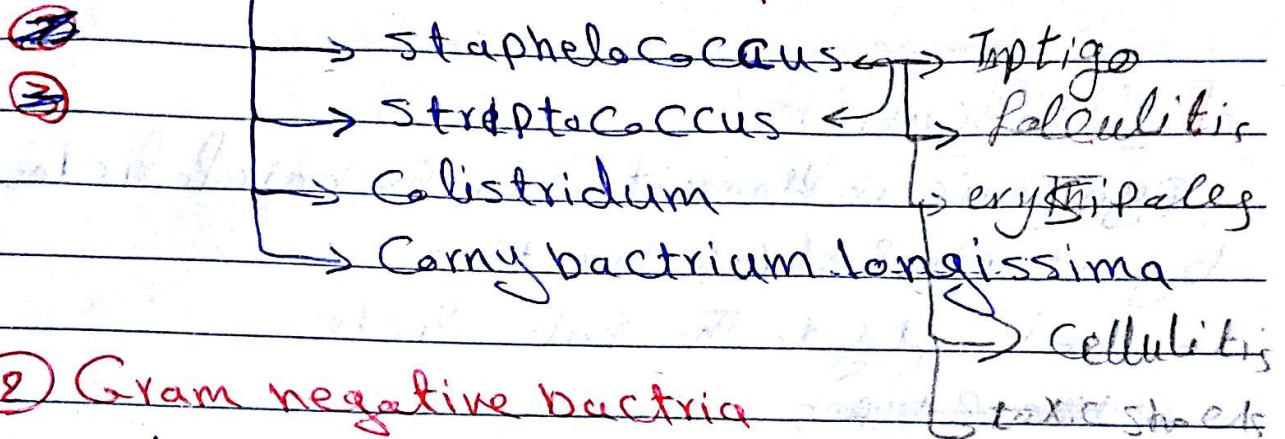 → StapheloCoCCus ↔ → Imptigo
→ StreptoCoCCus ← → folculitis
→ Colistridum → erysipales
→ Cornybactrium longissima
→ Cellulitis
② Gram negative bactria → toxic shocks